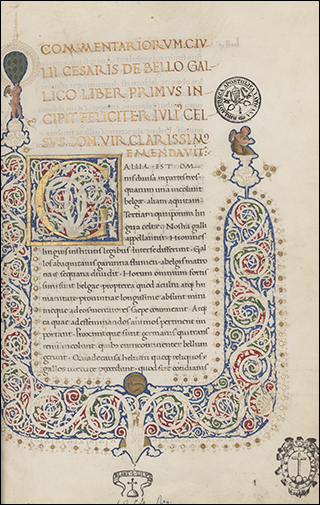 COMMENTARIORVM.C.IV
LII CESARIS DE BELLO GAL
LICO LIBER PRIMVS IN
CIPIT FELICITER. IVLIꝰ CEL
SVS.CON.VIR.CLARISSIMꝰ
EMENDAVIT:
GALLIA EST OM
nis divisa in partes tres
quarum una incolunt
belgæ aliam aquitani
tertiam qui ipsorum lin
gua celtæ Nostra galli
appellantur Hi omnes
linguis institutis legibus inter se differunt Gal
los ab aquitanis garunna flumen a belgis matro
na et sequana dividit Horum omnium fortis
simi sunt belgæ propterea quod a cultu atq hu
manitate provintiæ longissime absunt mini
meque ad eos mercatores sæpe commeant Atq
ea quæ ad effeminandos animos pertinent im
portant Proximiq sunt germanis qui trans
renum incolunt quibuscum continenter bellum
gerunt Qua de causa helvetii quoq reliquos
gallos virtute præcedunt quod fere cotidianis